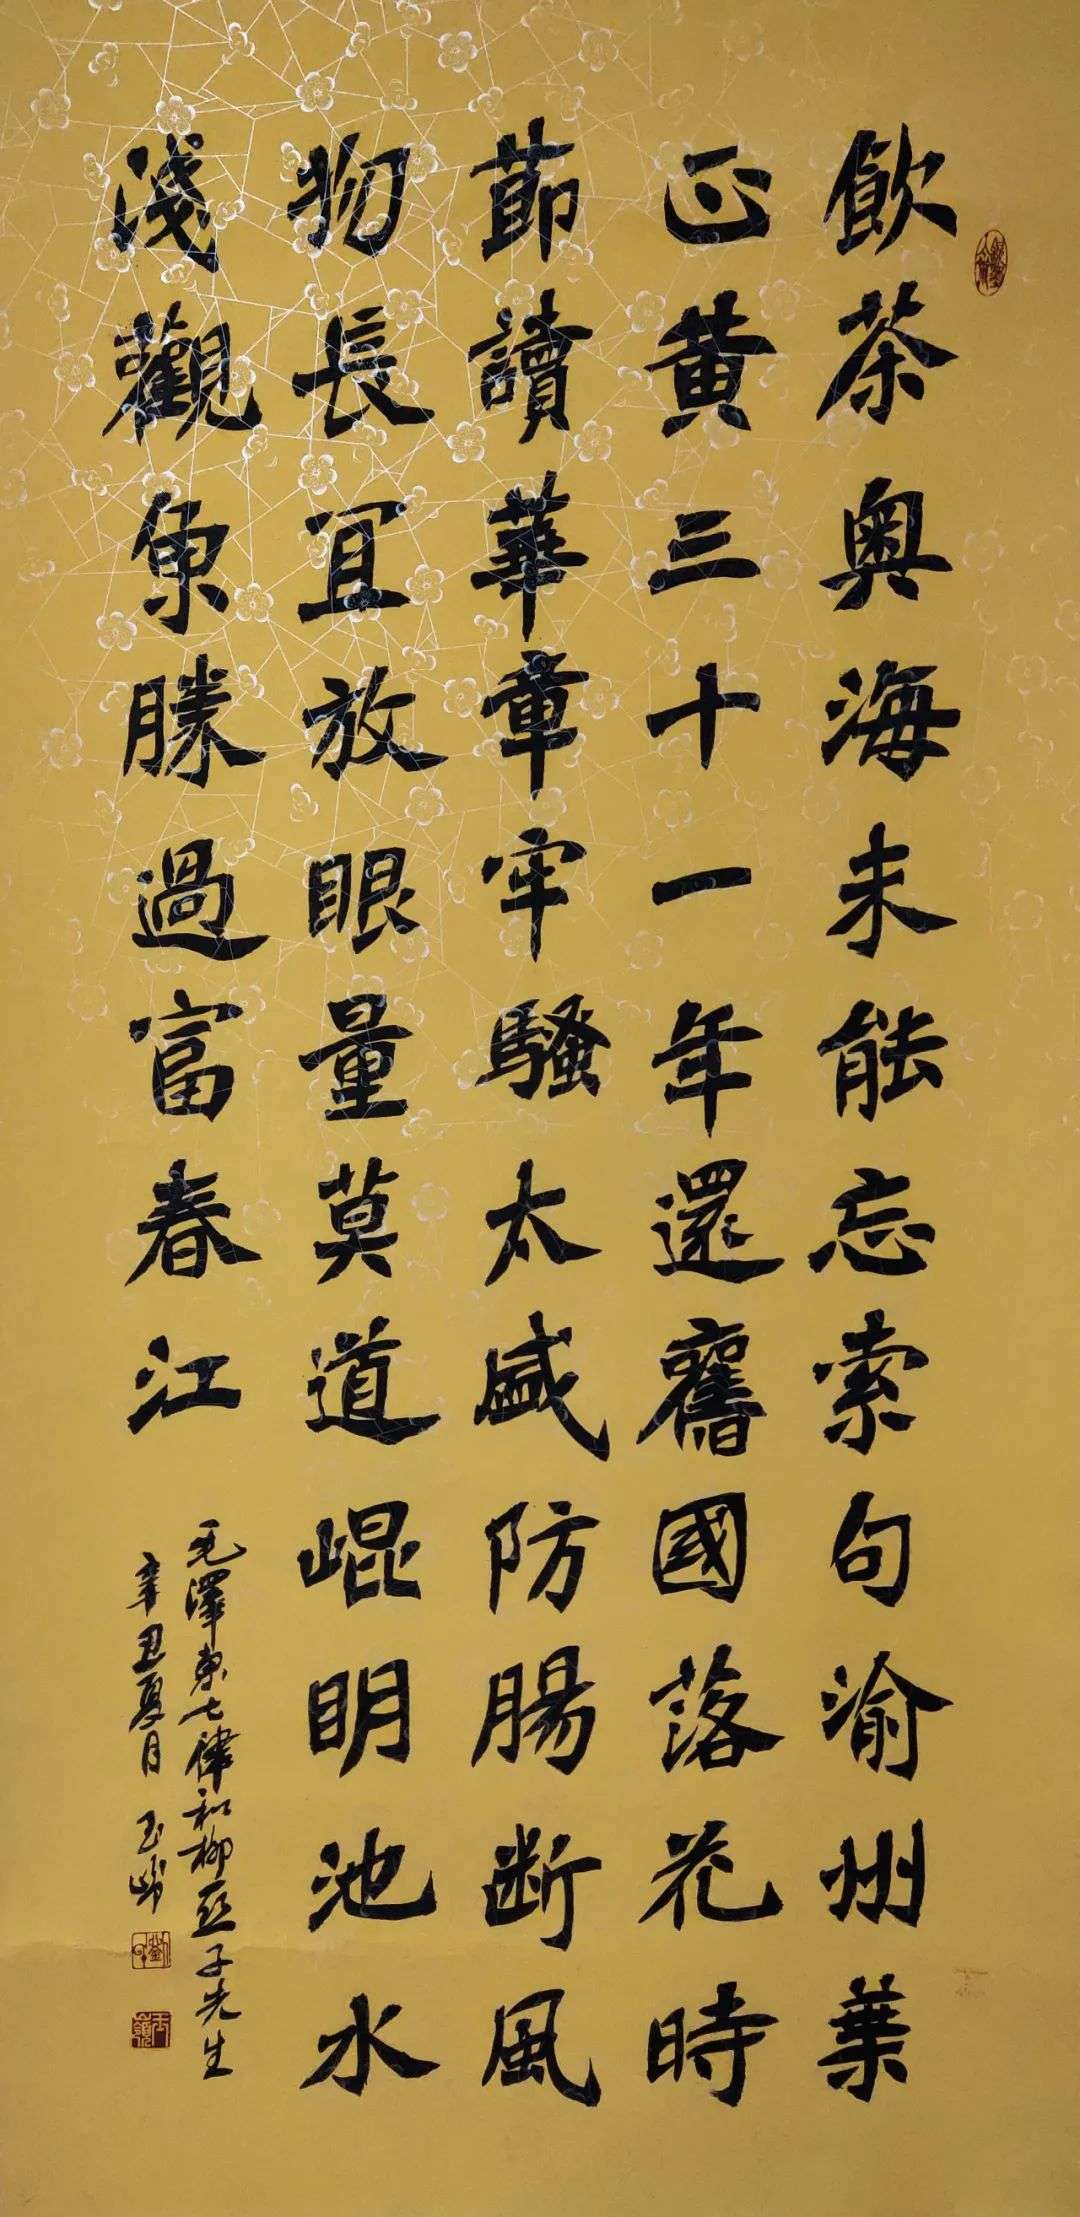 飲茶奥海未能忘索句渝州葉
正黄三十一年還舊國落花時
節讀華章牢騷太盛防腸断風
物長宜放眼量莫道崐明池水
淺觀魚勝過富春江
毛澤東七律和柳亞子先生
辛丑夏月 玉岭